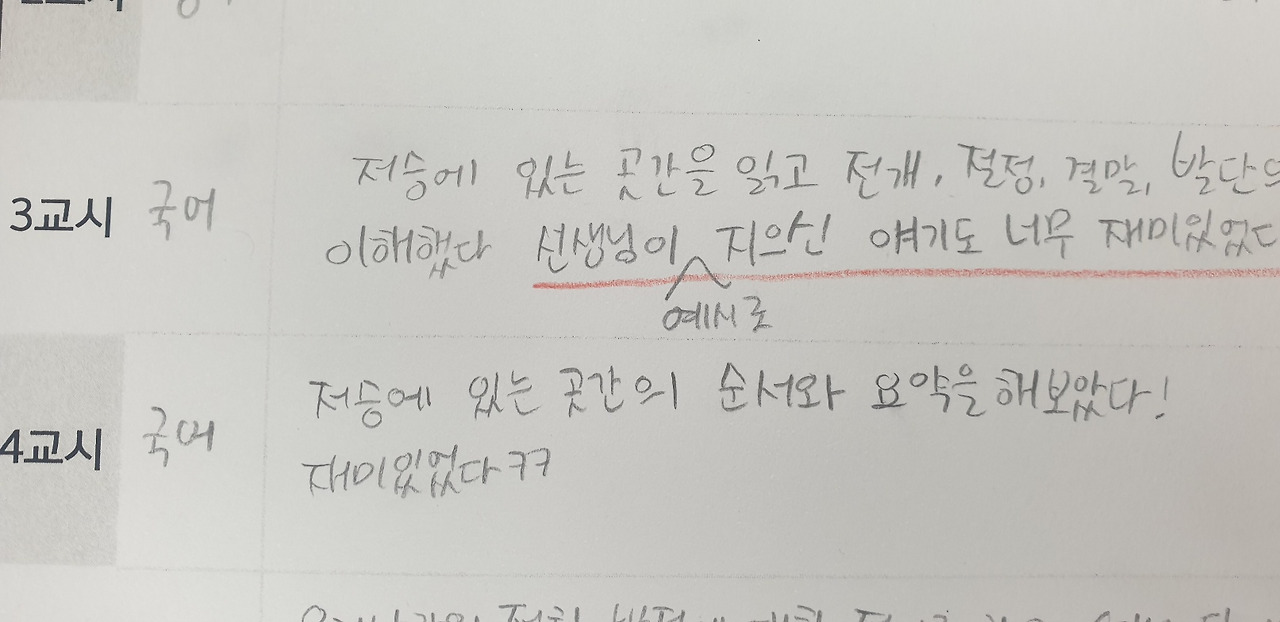 3교시 국어 저승에 있는 곳간을 읽고 전개, 절정, 결말, 발단의
이해했다 선생님이 지으신 얘기도 너무 재미있었다
예시로
4교시 국어 저승에 있는 곳간의 순서와 요약을 해보았다!
재미있었다ㅋㅋ